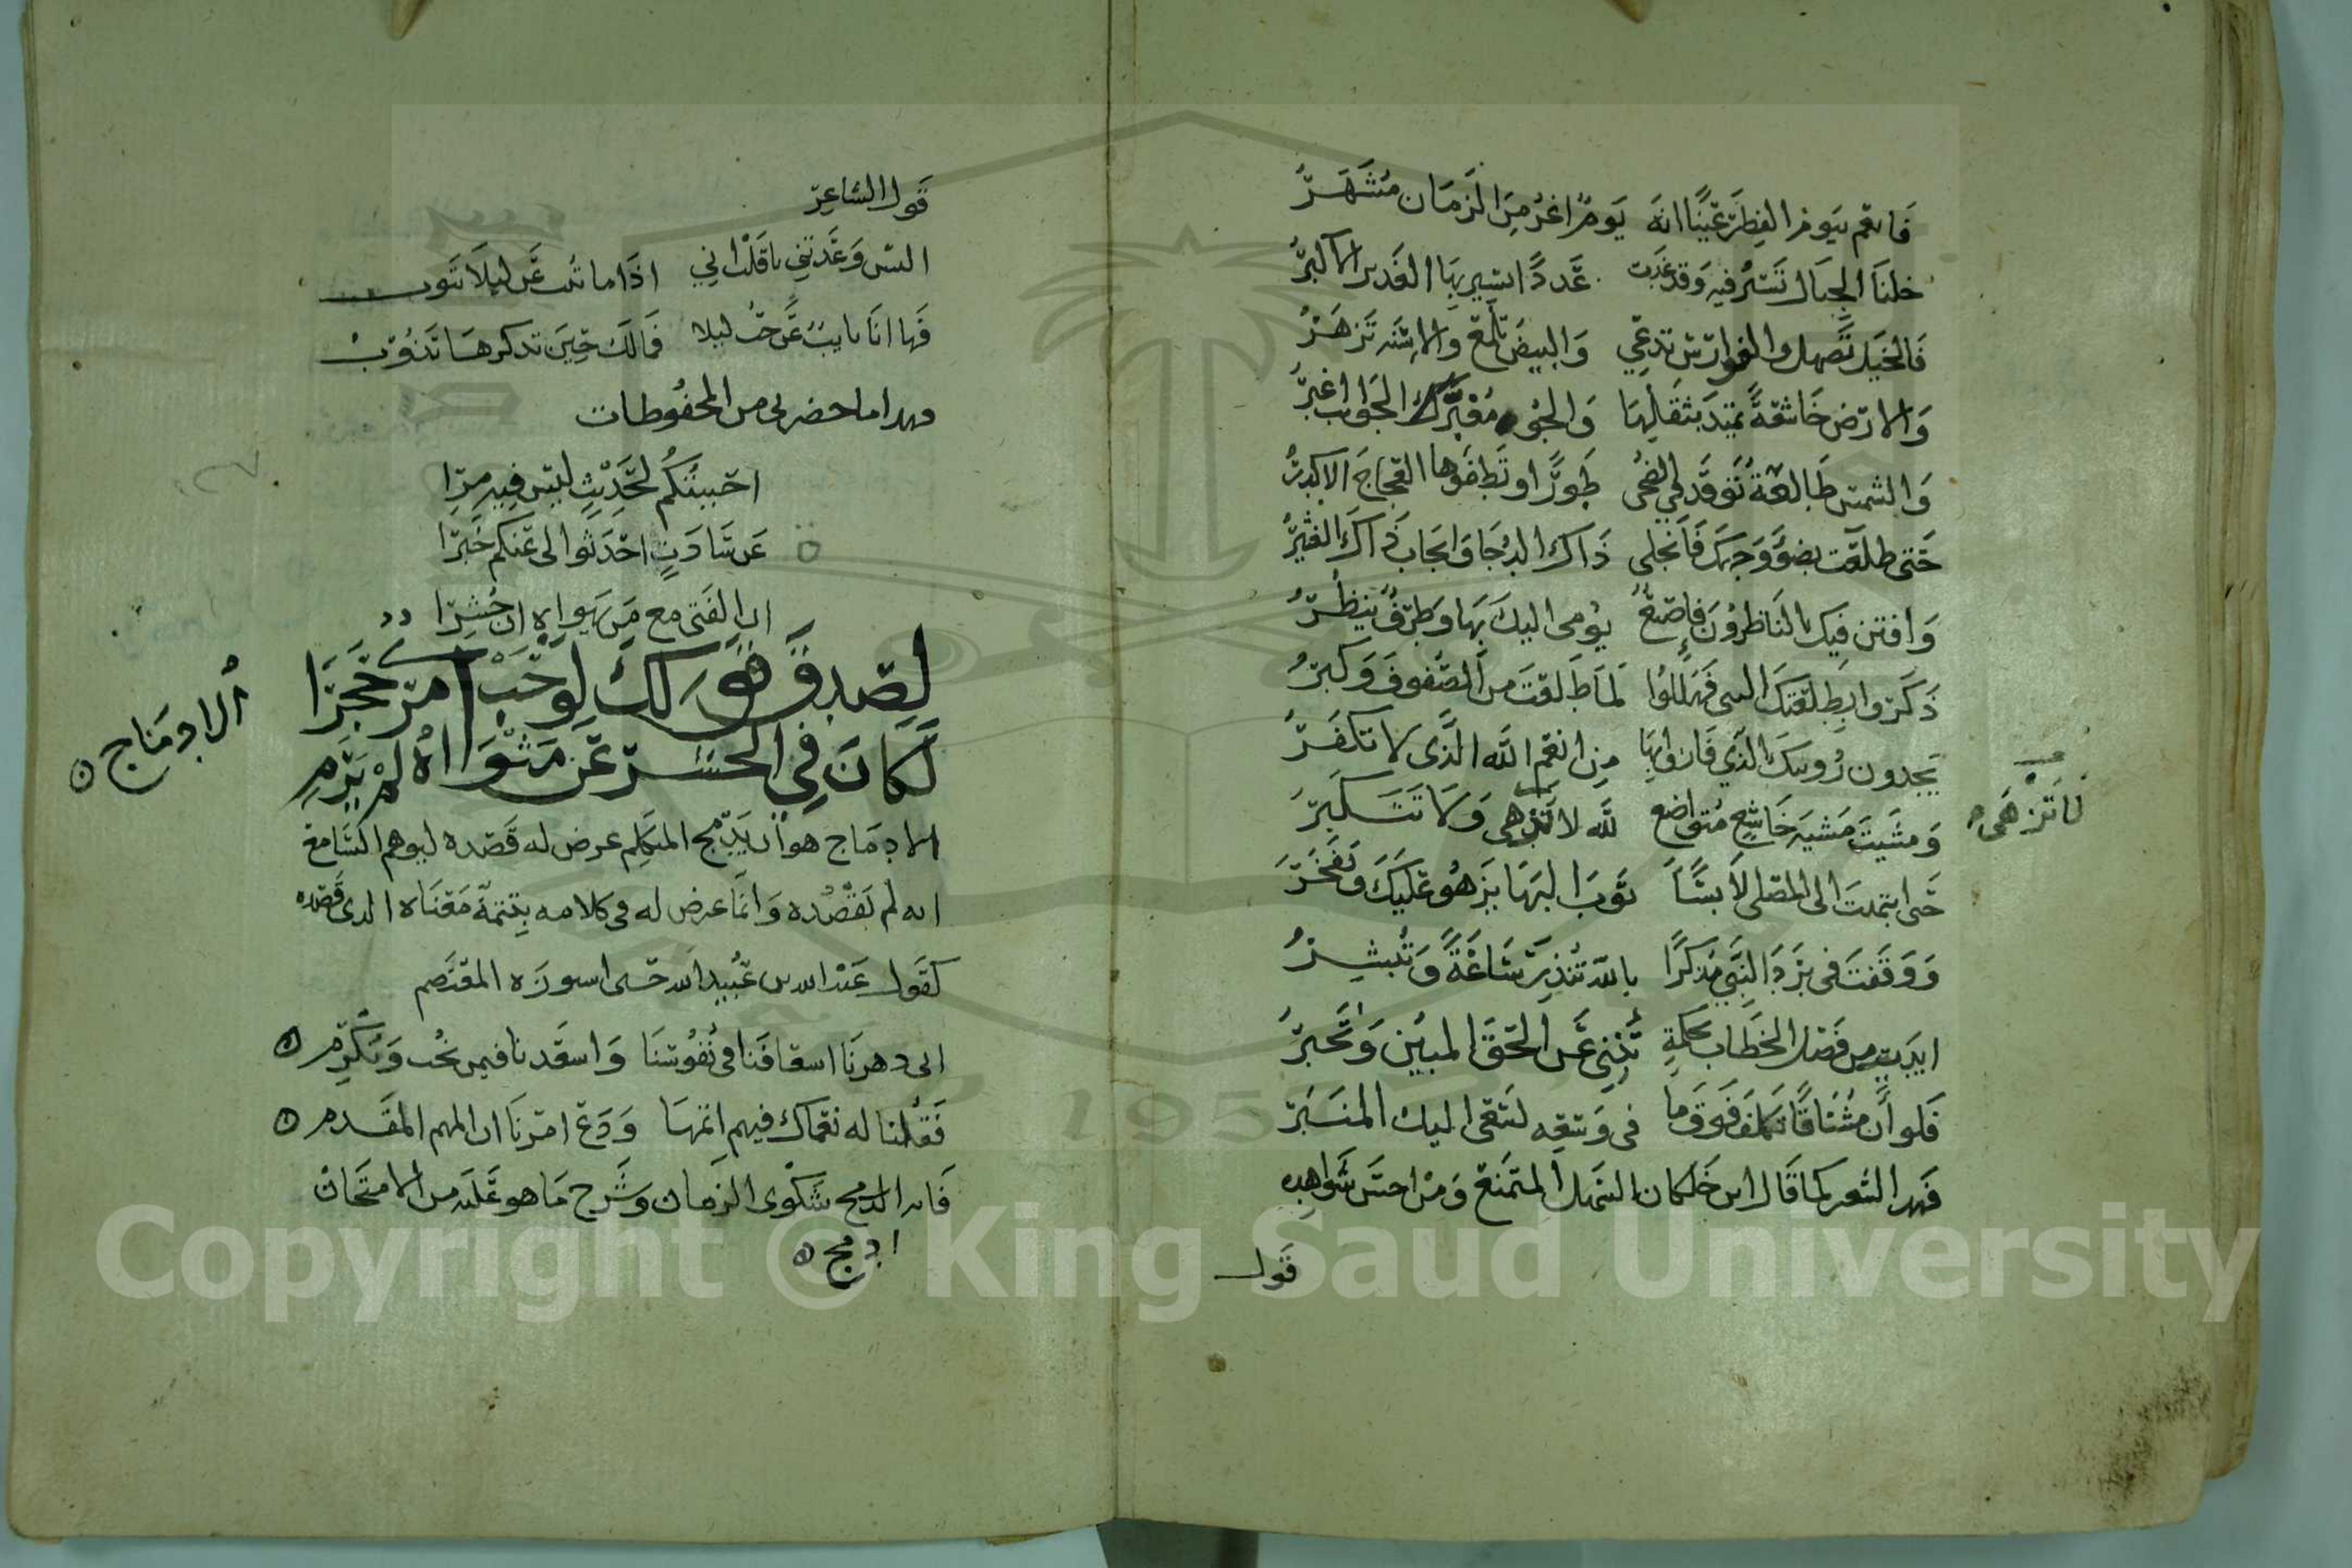 فانعم بيوم الفطر عينا انه يوم اغر من الزمان مشهر
خلنا الجبال تسير فيه وقد غدت عددا يسير بها العديد الاكبر
فالخيل تصهل والفوارس تدعي والبيض تلمع والاسنه تزهر
والارض خاشعة تميد بثقلها والجو معتكر الجوانب اغبر
والشمس طالعة توقد في الضحى طورا وتطفوها العجاج الاكدر
حتى طلعت بضو وجهك فانجلى ذاك الدجا وانجاب ذاك العثير
وافتن فيك الناظرون فاصبع يومى اليك بها وطرف ينظر
ذكروا بطلعتك النبى فهللوا لما طلعت من الصفوف وكبر
يجدون رويتك الذي فازوا بها من انعم الله الذى لا تكفر
ومشيت مشيه خاشع متواضع لله لا تزهى ولا تتكبر
لا تزهى
حتى انتهيت الى المصلى لابسا ثوب البها يزهو عليك وتفخر
ووقفت فى برد النبي مذكرا بالله تنذر ساعة وتبشر
ايديت من فصل الخطاب بحكمة تنبي عن الحق المبين وتخبر
فلو ان مشتاقا تكلف فوق ما فى وسعه لسعى اليك المنبر
فهدا الشعر كما قال ابن خلكان السهل الممتنع ومن احسن شواهده
قول
قول الشاعر
اليس وعدتني يا قلب اني اذا ما تبت عن ليلا تتوب
فها انا تايب عن حب ليلا فمالك حين تدكرها تذوب
وهدا ما حضرنى من المحفوظات
احببتكم لحديث ليس فيه مرا
عن سادة احدثوا لى عنكم خبرا
ان الفتى مع من يهواه ان حشرا
لصدق قولك لو حب امر حجرا
لكان في الحشر عن مثواه لم يرم
الادماج
الادماج هو ان يدمج المتكلم عرض له قصده ليوهم السامع
انه لم يقصده وانما عرض له فى كلامه بتتمة معناه الدى قصده
كقول عبد الله بن عبيد الله حين استوزره المعتصم
ابى دهرنا اسعافنا فى نفوسنا واسعدنا فيمن نحب ونكرم
فقلنا له نعماك فيهم اتمها ودع امرنا ان المهم المقدم
فانه ادمج شكوى الزمان وشرح ما هو عليه من الامتحان
ادمج
Copyright © King Saud University
195